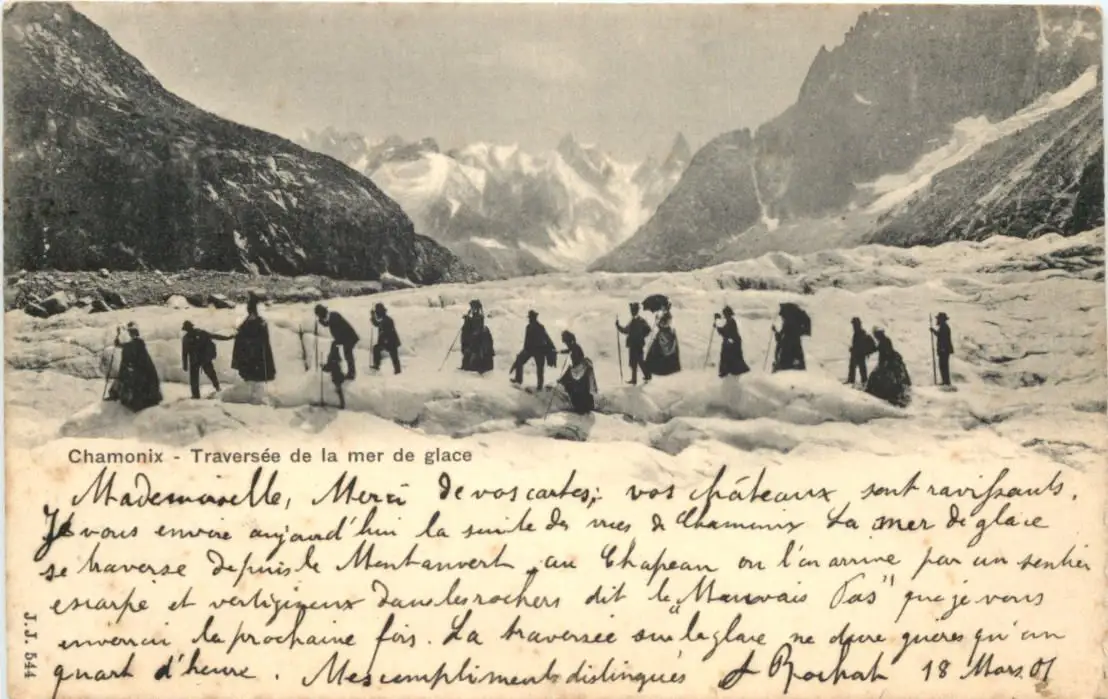 Chamonix - Traversée de la mer de glace
Mademoiselle, Merci de vos cartes; vos châteaux sont ravissants.
Je vous envoie aujourd'hui la suite des vues de Chamonix La mer de glace
se traverse depuis le Montanvert au Chapeau où l'on arrive par un sentier
escarpé et vertigineux dans les rochers dit le "Mauvais Pas" que je vous
enverrai la prochaine fois. La traversée sur la glace ne dure guères qu'un
quart d'heure. Mes compliments distingués J Rochat 18 Mars 01
J.J. 544